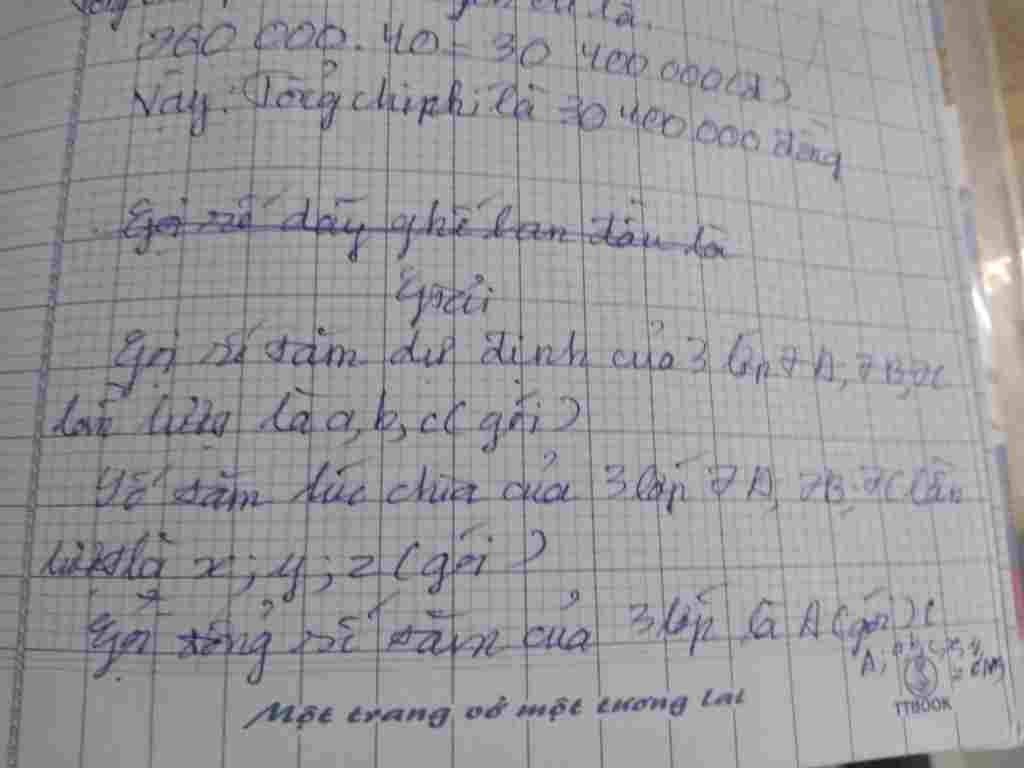 là.
760 000. 40 = 30 400 000(đ)
Vậy: Tổng chi phí là 30 400 000 đồng
Gọi số dãy ghế ban đầu là
Giải
Gọi số tăm dự định của 3 lớp 7A; 7B; 7C
lần lượt là a, b, c (gói)
Số tăm lúc chia của 3 lớp 7A; 7B; 7C lần
lượt là x; y; z (gói)
Gọi tổng số tăm của 3 lớp là A (gói) (
A;
Một trang vở một tương lai
TTBOOK